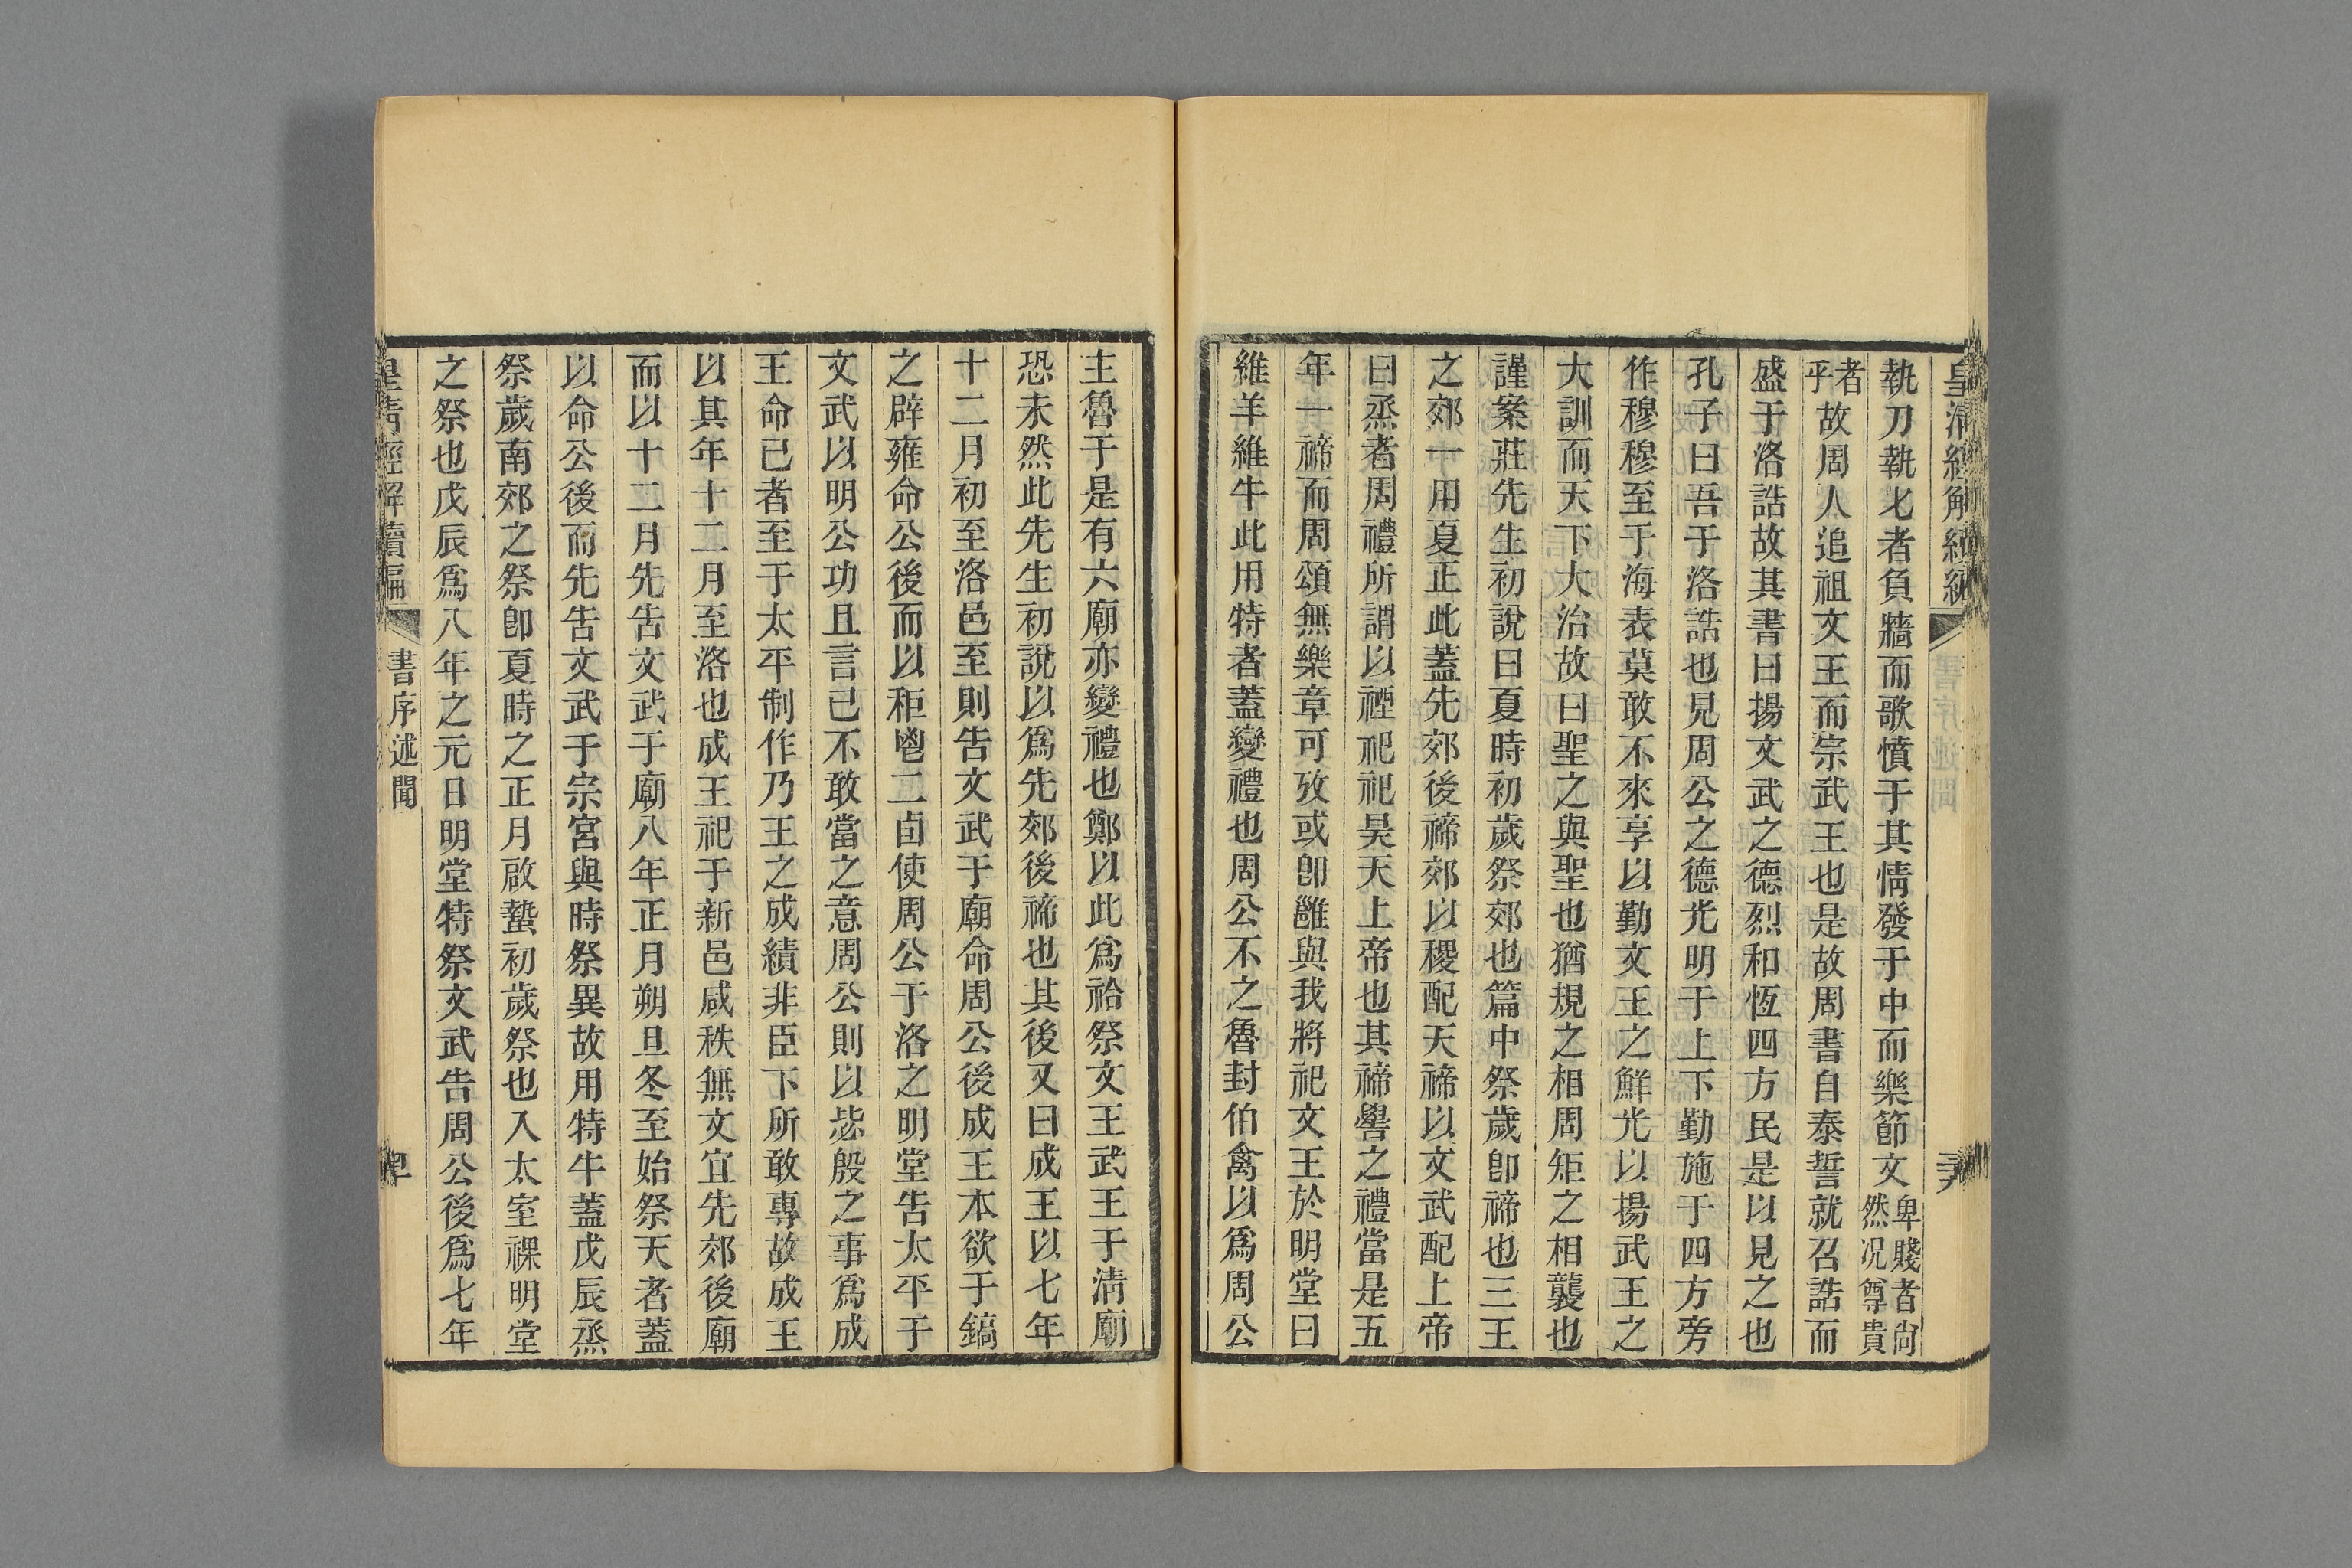 皇清經解續編
執刀執匕者負牆而歌憤于其情發于中而樂節文卑賤者尚然况尊貴
者乎故周人追祖文王而宗武王也是故周書自泰誓就召誥而
盛于洛誥故其書曰揚文武之德烈和恆四方民是以見之也
孔子曰吾于洛誥也見周公之德光明于上下勤施于四方旁
作穆穆至于海表莫敢不來享以勤文王之鮮光以揚武王之
大訓而天下大治故曰聖之與聖也猶規之相周矩之相襲也
謹案莊先生初說曰夏時初歲祭郊也篇中祭歲卽禘也三王
之郊一用夏正此蓋先郊後禘郊以稷配天禘以文武配上帝
曰烝者周禮所謂以禋祀祀昊天上帝也其禘嚳之禮當是五
年一禘而周頌無樂章可攷或卽雝與我將祀文王於明堂曰
維羊維牛此用特者蓋變禮也周公不之魯封伯禽以爲周公
主魯于是有六廟亦變禮也鄭以此爲祫祭文王武王于淸廟
恐未然此先生初說以爲先郊後禘也其後又曰成王以七年
十二月初至洛邑至則告文武于廟命周公後成王本欲于鎬
之辟雍命公後而以秬鬯二卣使周公于洛之明堂告太平于
文武以明公功且言己不敢當之意周公則以毖殷之事爲成
王命已者至于太平制作乃王之成績非臣下所敢專故成王
以其年十二月至洛也成王祀于新邑咸秩無文宜先郊後廟
而以十二月先告文武于廟八年正月朔旦冬至始祭天者蓋
以命公後而先告文武于宗宮與時祭異故用特牛蓋戊辰烝
祭歲南郊之祭卽夏時之正月啟蟄初歲祭也入太室祼明堂
之祭也戊辰爲八年之元日明堂特祭文武告周公後爲七年
皇清經解續編 書序述聞